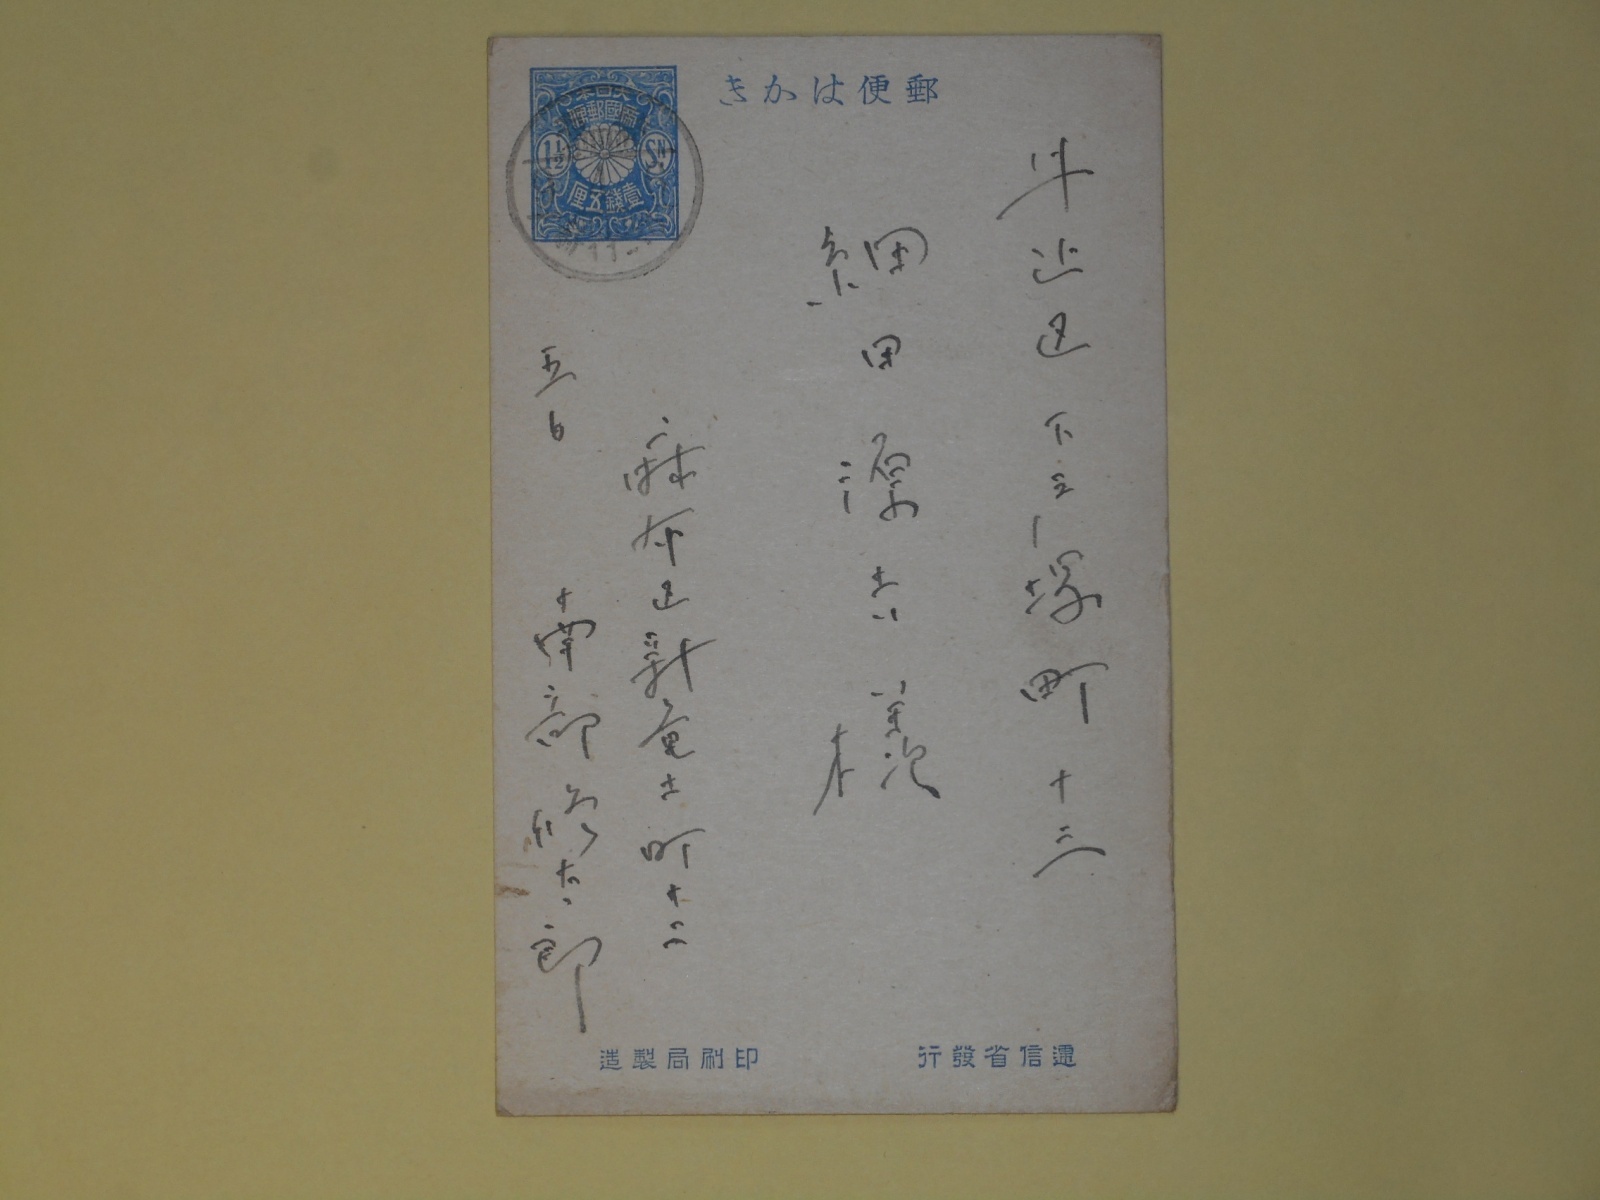 郵便はかき
大日本
帝國郵便
1½ Sn.
壹錢五厘
牛込区下戸塚町十三
細田源吉様
麻布区新竜土町十二
五日
南部修太郎
遞信省發行
印刷局製造